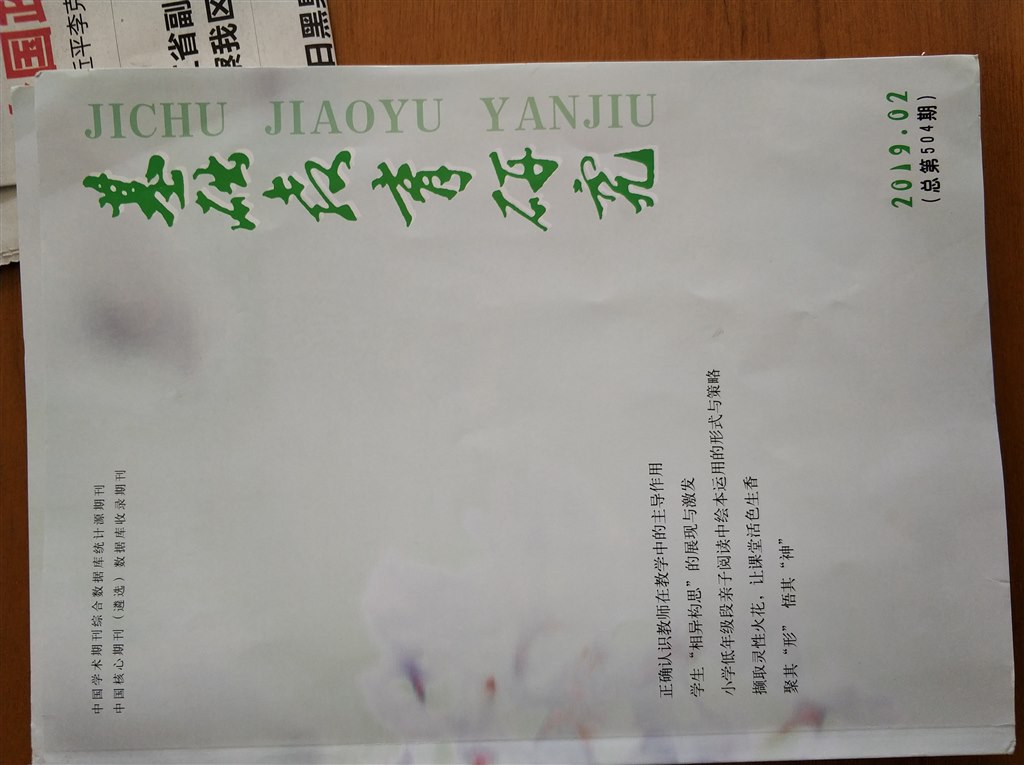 JICHU JIAOYU YANJIU
基础教育研究
2019.02
(总第504期)
中国学术期刊综合数据库统计源期刊
中国核心期刊（遴选）数据库收录期刊
正确认识教师在教学中的主导作用
学生“相异构思”的展现与激发
小学低年级段亲子阅读中绘本运用的形式与策略
撷取灵性火花，让课堂活色生香
聚其“形” 悟其“神”
国
平李克
省副
我区
日黑